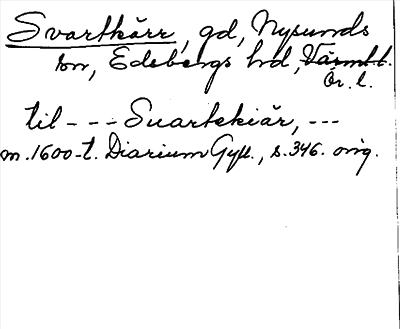 Svartkärr, gd, Nysunds
sn, Edsbergs hd, Värml.l.
Ör. l.
til --- Suartekiär, ---
m. 1600-t. Diarium Gyll., s. 346. orig.